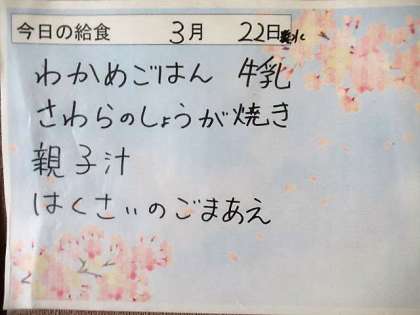 今日の給食 3月 22日
わかめごはん 牛乳
さわらのしょうが焼き
親子汁
はくさいのごまあえ